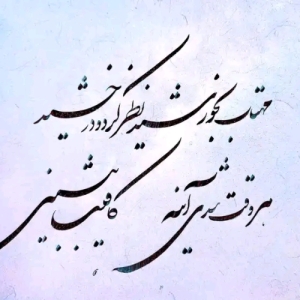 مهتاب به خورشید نظر کرد و درخشید
هر وقت شدی آینه کافیست ببینی